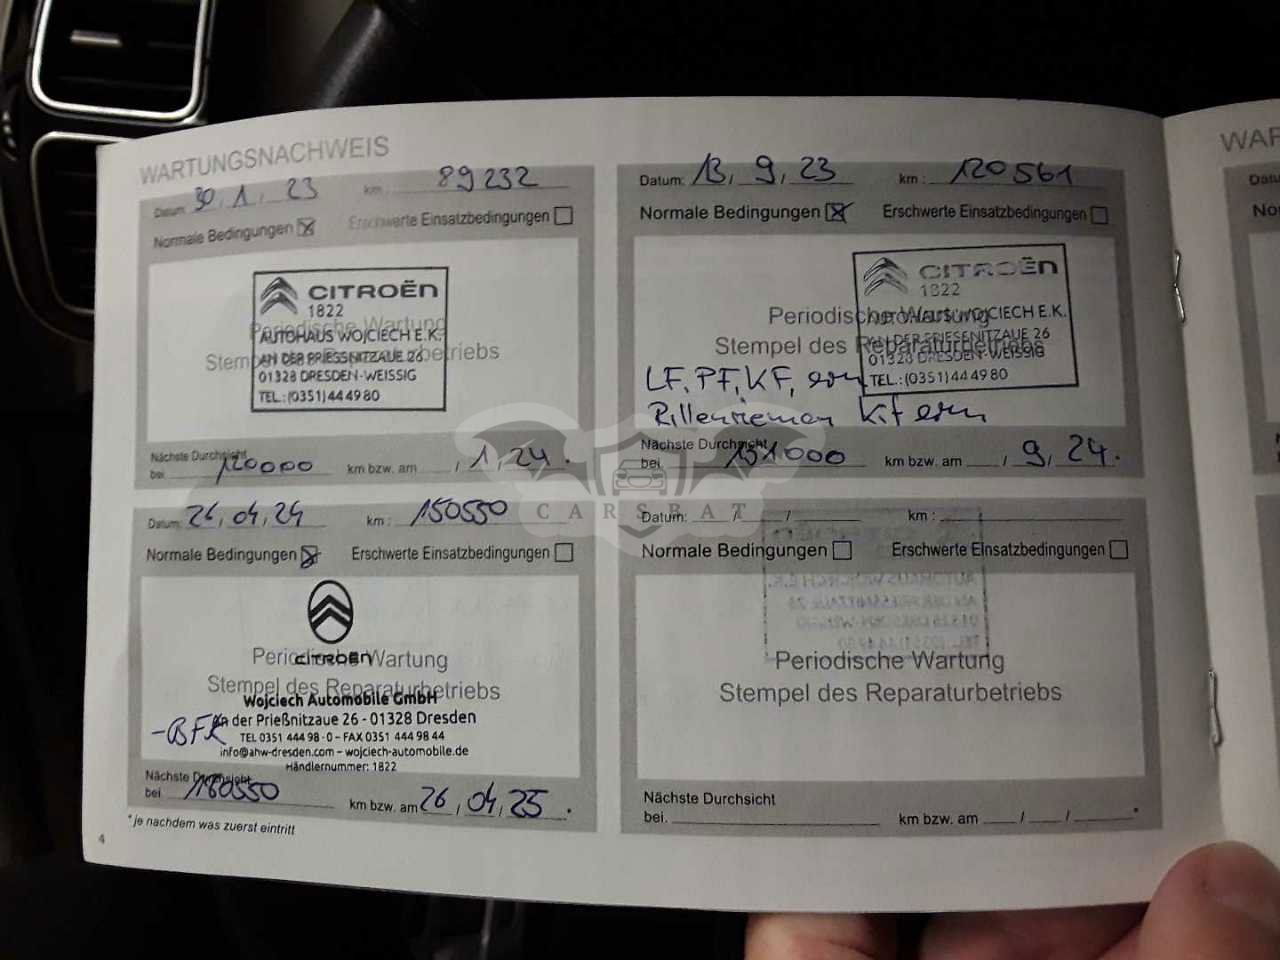 WARTUNGSNACHWEIS
Datum: 30, 1, 23 km: 89232
Normale Bedingungen Erschwerte Einsatzbedingungen
CITROËN
1822
Periodische Wartung
AUTOHAUS WOJCIECH E.K.
Stempel des Reparaturbetriebs
AN DER PRIESSNITZAUE 26
01328 DRESDEN-WEISSIG
TEL.:(0351)444980
Nächste Durchsicht
bei 120000 km bzw. am / 1, 24.
Datum: 13, 9, 23 km: 120561
Normale Bedingungen Erschwerte Einsatzbedingungen
CITROËN
1822
Periodische Wartung
AUTOHAUS WOJCIECH E.K.
Stempel des Reparaturbetriebs
AN DER PRIESSNITZAUE 26
01328 DRESDEN-WEISSIG
TEL.:(0351)444980
LF, PF, KF, ern
Rillenriemen Kit ern
Nächste Durchsicht
bei 151000 km bzw. am / 9, 24.
Datum: 26, 04, 24 km: 150550
Normale Bedingungen Erschwerte Einsatzbedingungen
CITROËN
Periodische Wartung
Stempel des Reparaturbetriebs
Wojciech Automobile GmbH
An der Prießnitzaue 26 - 01328 Dresden
-BFK
TEL 0351 444 98 · 0 – FAX 0351 444 98 44
info@ahw-dresden.com – wojciech-automobile.de
Händlernummer: 1822
Nächste Durchsicht
bei 180550 km bzw. am 26, 04, 25 *
Datum: / / km:
Normale Bedingungen Erschwerte Einsatzbedingungen
Periodische Wartung
Stempel des Reparaturbetriebs
Nächste Durchsicht
bei. km bzw. am / / *
* je nachdem was zuerst eintritt
4
CARSBAT
WAR
Datu
No